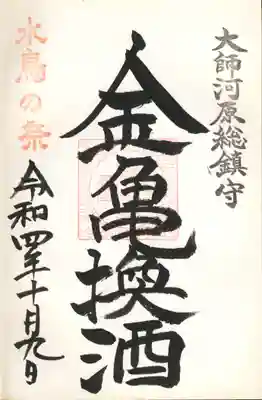 大師河原総鎮守
金亀換酒
水鳥の祭
令和四年十月九日